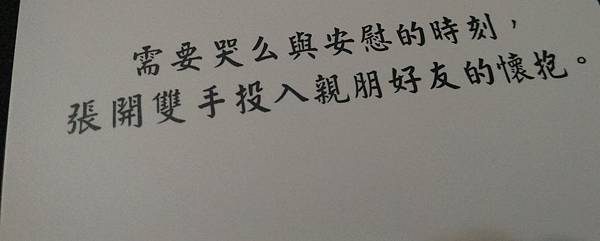 需要哭么與安慰的時刻，
張開雙手投入親朋好友的懷抱。